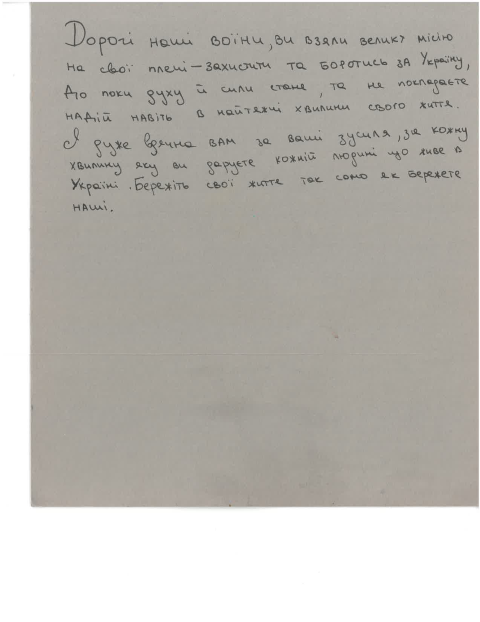 Дорогі наші воїни, ви взяли велику місію
на свої плечі – захистити та боротись за Україну,
до поки духу й сили стане, та не покладаєте
надій навіть в найтяжчі хвилини свого життя.
Я дуже вдячна вам за ваші зусиля, за кожну
хвилину яку ви даруєте кожній людині що живе в
Україні. Бережіть свої життя так само як бережете
наші.